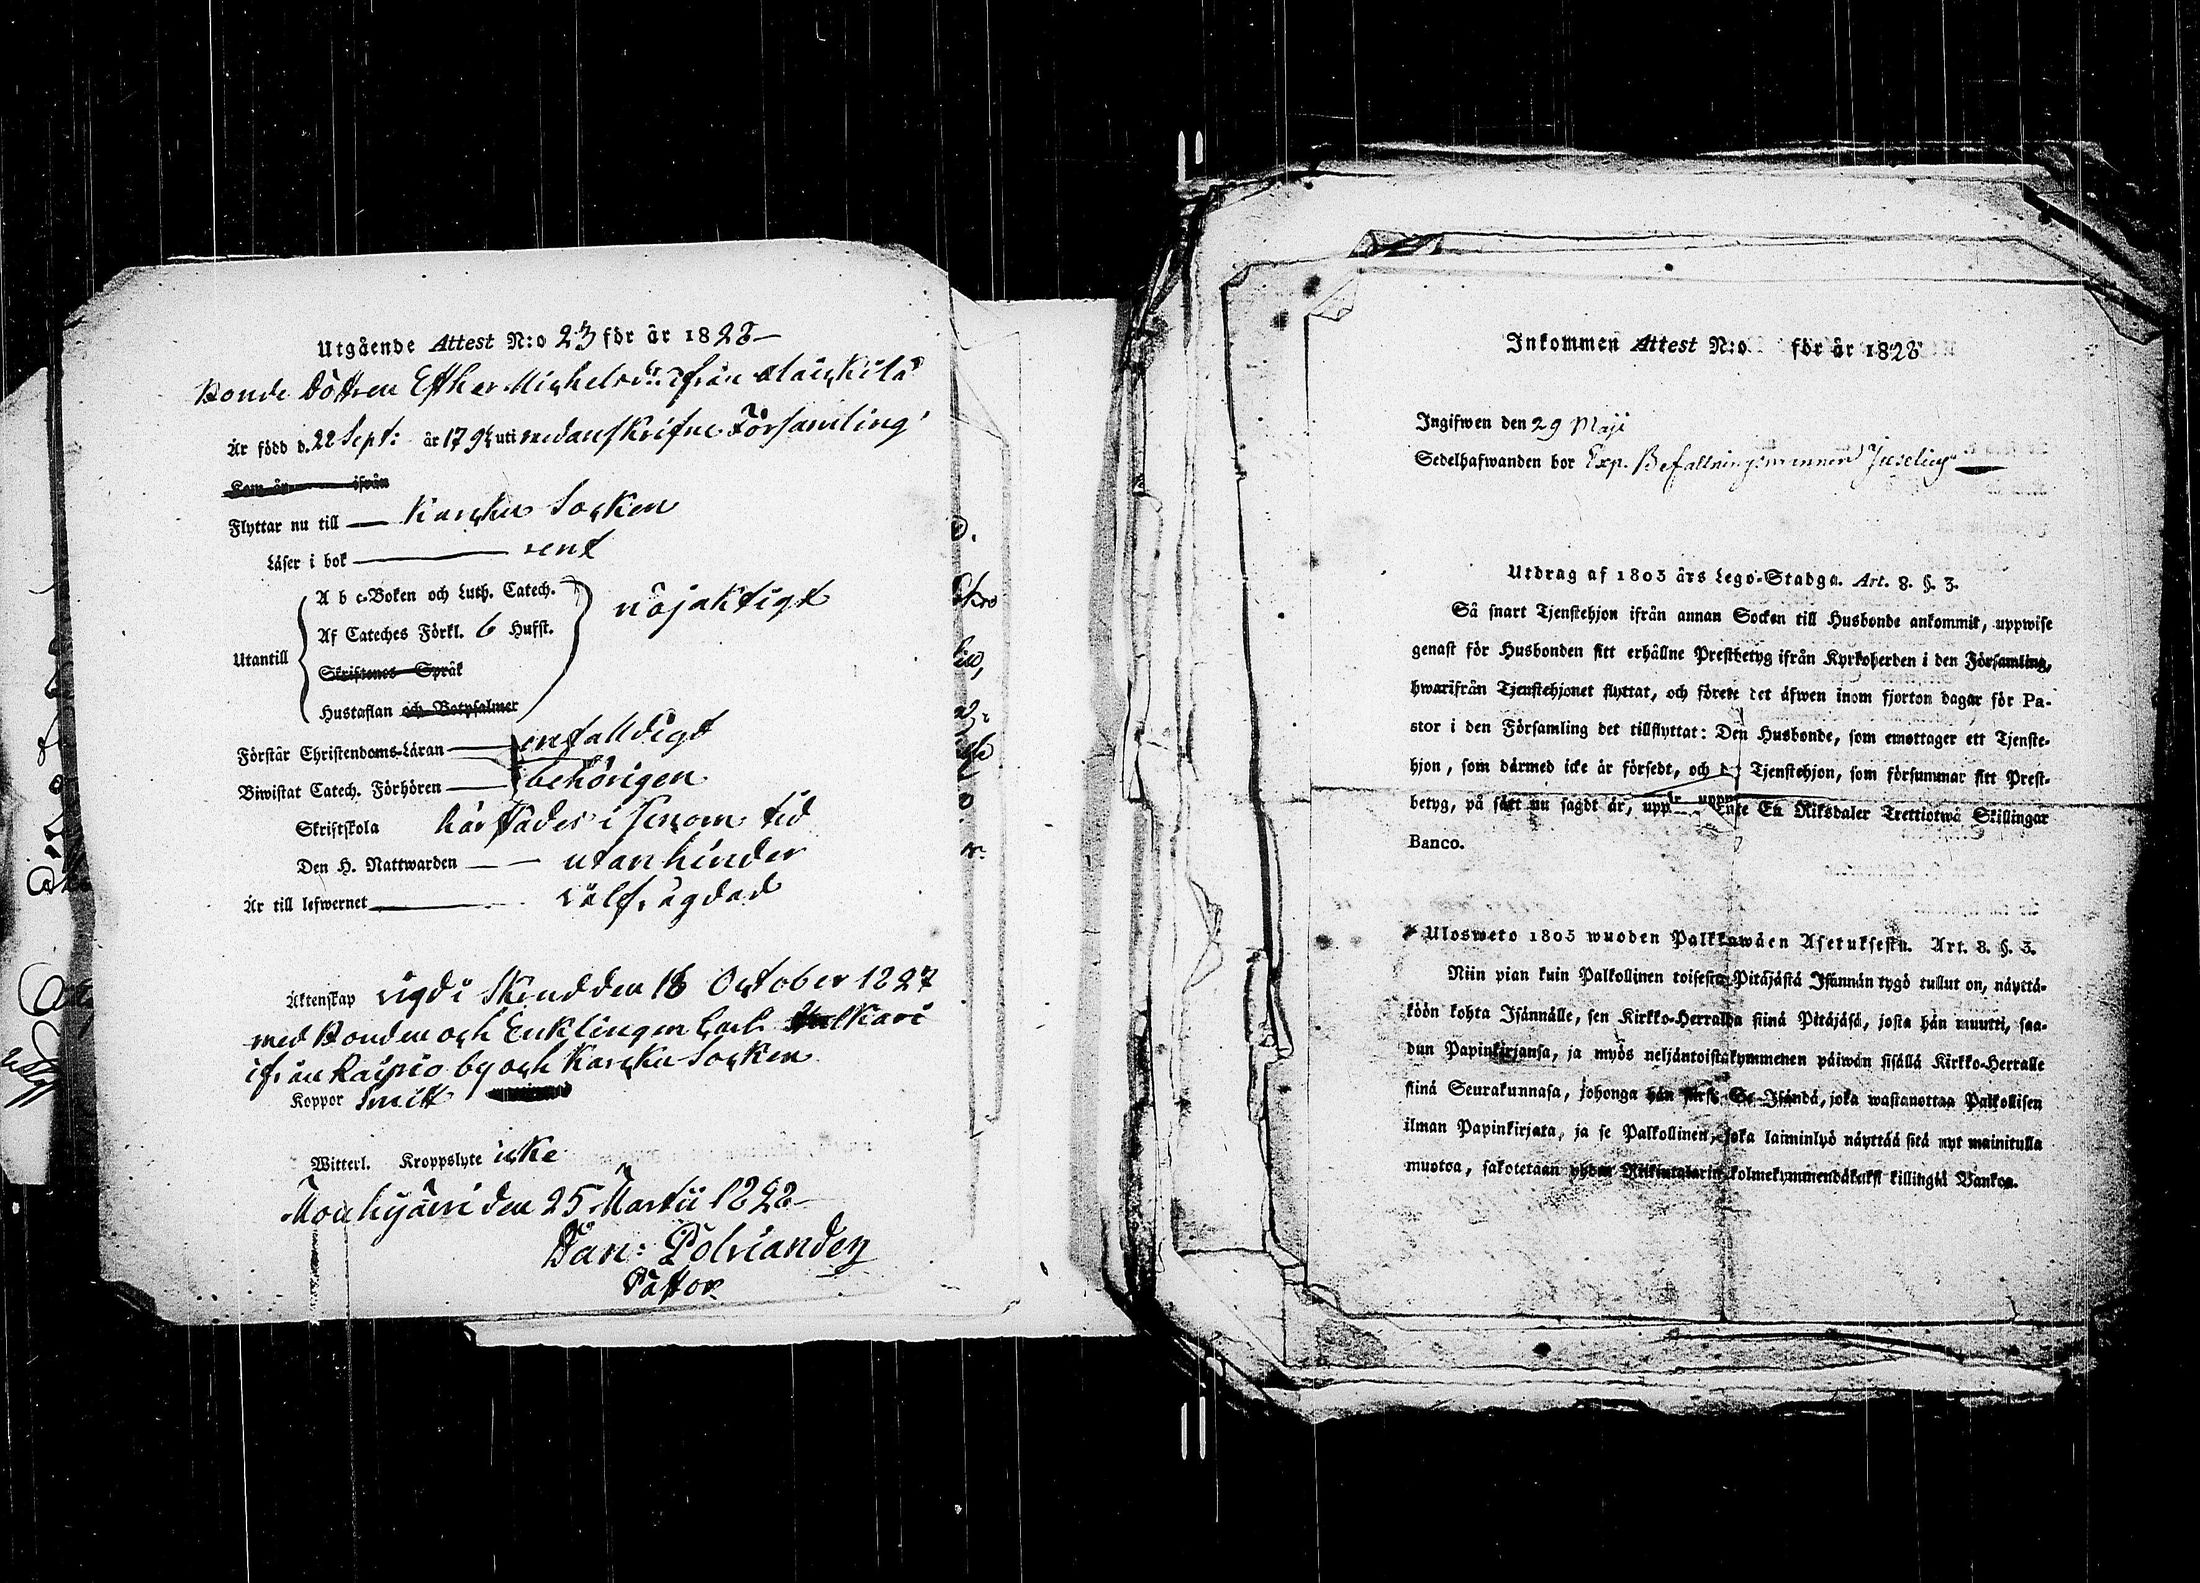 Utgående Attest N:o 23 för år 1828
Bonde Dottren Esther Michelsdr ifrån
Är född d. 22 Sept: år 179 uti nedanskrifne Församling
Kom år ifrån
Flyttar nu till Karcku Socken
Läser i bok rent
A b c-Boken och Luth. Catech.
Af Cateches Förkl. 6 Hufst. nöjaktigt
Utantill
Skriftenes Språk
Hustaflan och Botpsalmer
Förstår Christendoms-Läran enfalldigt
Biwistat Catech. Förhören behörigen
Skriftskola härstädes i tid
Den H. Nattwarden utan hinder
Är till lefwernet välfrägdad
Äktenskap vigd i den 18 October 1827
med Bonden och Enklingen Carl
ifrån Raipio by och Karcku Socken
Koppor
Witterl. Kroppslyte icke
Mouhijärvi den 25 Martii 1828
Dan: Polviander
Pastor
Inkommen Attest N:o för år 1828
Ingifwen den 29 Maji
Sedelhafwanden bor Exp. Befallningsmannen Juselius
Utdrag af 1805 års Lego-Stadga. Art. 8. §. 3.
Så snart Tjenstehjon ifrån annan Socken till Husbonde ankommit, uppwise
genast för Husbonden sitt erhållne Prestbetyg ifrån Kyrkoherden i den Församling,
hwarifrån Tjenstehjonet flyttat, och förete det äfwen inom fjorton dagar för Pa-
stor i den Församling det tillflyttat: Den Husbonde, som emottager ett Tjenste-
hjon, som därmed icke är försedt, och Tjenstehjon, som försummar sitt Prest-
betyg, på sätt nu sagdt är, upp En Riksdaler Trettiotwå Skillingar
Banco.
Ulosweto 1805 wuoden Palkkawäen Asetuksesta. Art. 8. §. 3.
Niin pian kuin Palkollinen toisesta Pitäjästä Isännän tygö tullut on, näyttä-
köön kohta Isännälle, sen Kirkko-Herralda siinä Pitäjäsä, josta hän muutti, saa-
dun Papinkirjansa, ja myös neljäntoistakymmenen päiwän sisällä Kirkko-Herralle
siinä Seurakunnasa, johonga hän Se Isändä, joka wastanottaa Palkollisen
ilman Papinkirjata, ja se Palkollinen, joka laiminlyö näyttää sitä nyt mainitulla
muotoa, sakotetaan yhden Riikintalarin kolmekymmendäkaksi killingiä Bankoa.